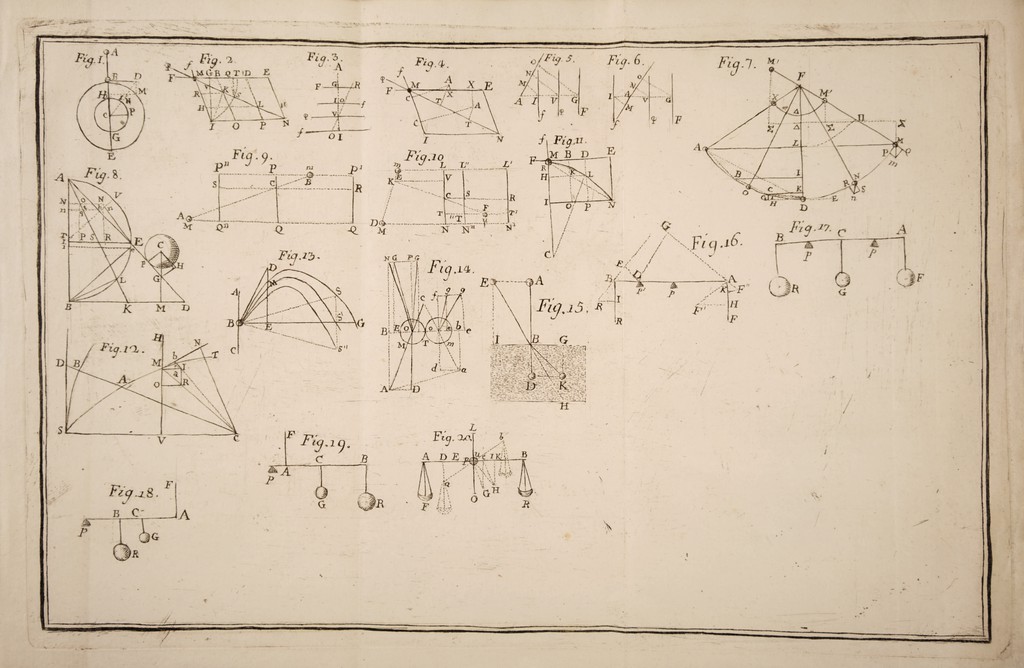 Fig.1.
A
B D
M
H
N
P
C
G
E
Fig. 2.
f
F
M G B Q T D E
R V K S
H L
I O P N
Fig.3.
A
F G R
I
O f
I
Fig.4.
f
F M A X E
C T X A
I N
Fig.5.
O
N
M
A I V G
f F
Fig.6.
O
N
I A V G
M
f F
Fig.7.
M'
F
X M'
Δ
Σ Σ X
A L Π
P Q
m
B I
K N
O C R S
H D E n
Fig.8.
A V
N
M
T P S R E
C
P H
G
L
B K M D
Fig.9.
P" P m P'
S C B R
A
M Q" Q Q'
Fig.10.
m L L" L'
K E V
C S R
F
D T T'
M N N" N'
Fig.11.
f
F M B D E
R
H K L
I O P N
C
Fig.12.
H
N
M b T
D B I
a
A O R
S V C
Fig.13.
D
A M S
B G
E S'
C S"
Fig.14.
N G P G
c f g g
B E O b e
M T m
d a
A D
Fig.15.
E A
I B G
D K
H
Fig.16.
G
E
B D A
P P K F"
R I F" H
R F
Fig.17.
B C A
P P
R G F
Fig.18.
F
B C A
P
R G
Fig.19.
F
A C B
P
G R
Fig.20.
L
b
A D E P I K B
Q G H
F O R